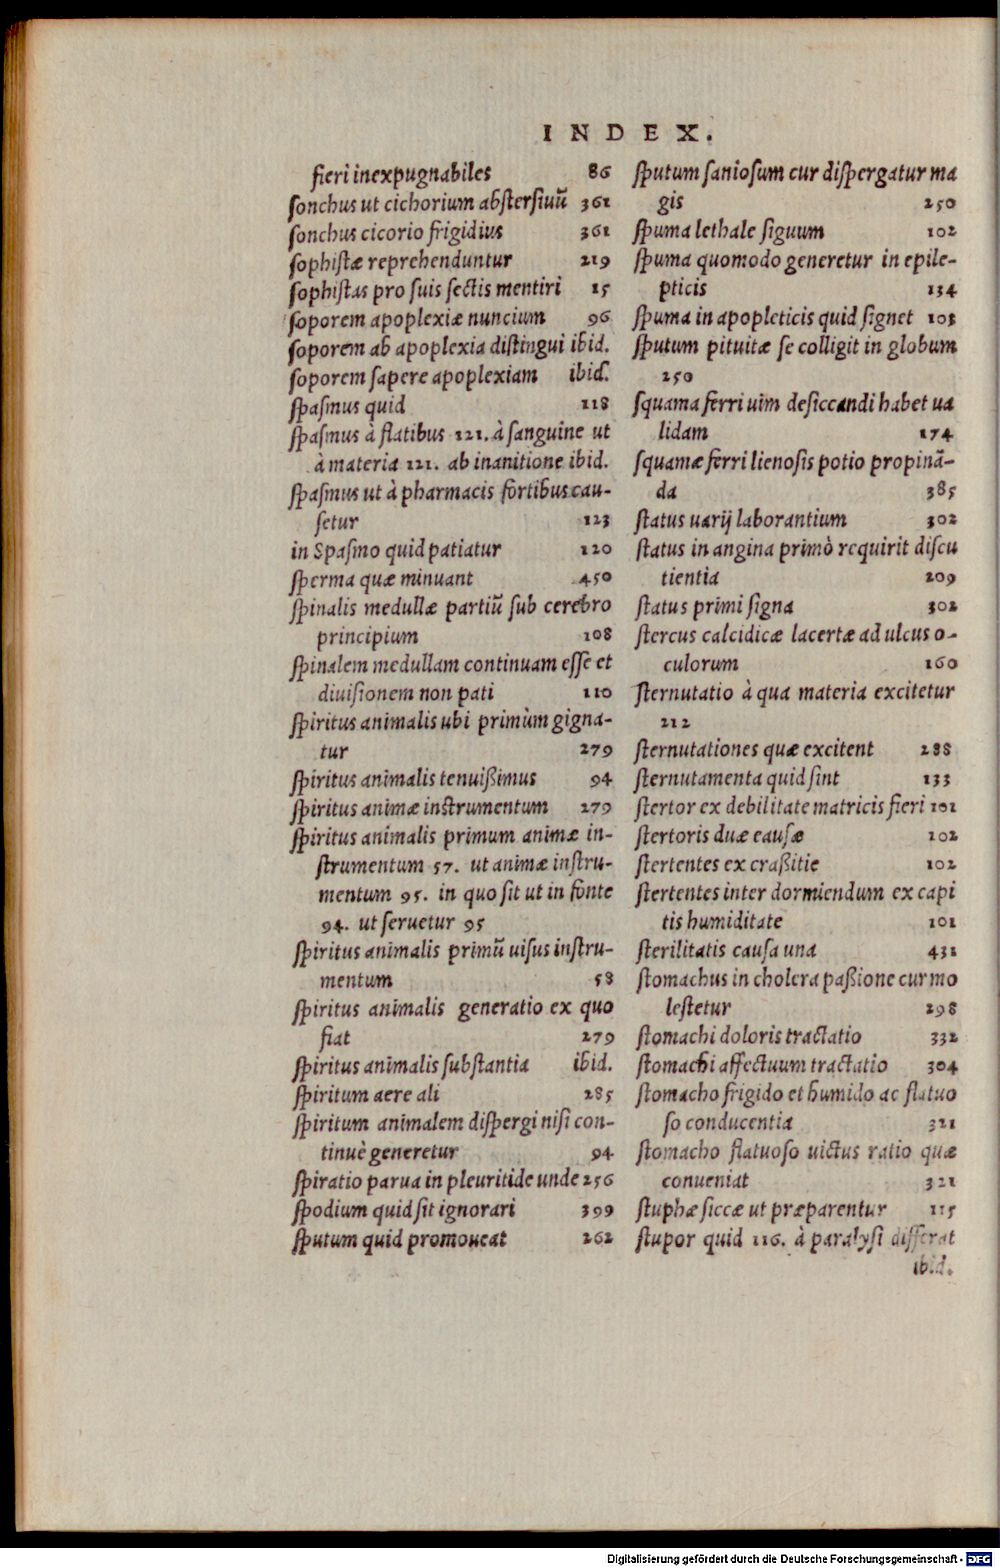 INDEX.
fieri inexpugnabiles 86
ſonchus ut cichorium abſterſiuũ 361
ſonchus cicorio frigidius 361
ſophiſtæ reprehenduntur 219
ſophiſtas pro ſuis ſectis mentiri 15
ſoporem apoplexiæ nuncium 96
ſoporem ab apoplexia diſtingui ibid.
ſoporem ſapere apoplexiam ibid.
ſpaſmus quid 118
ſpaſmus à flatibus 121. à ſanguine ut
à materia 121. ab inanitione ibid.
ſpaſmus ut à pharmacis fortibus cau-
ſetur 123
in Spaſmo quid patiatur 120
ſperma quæ minuant 450
ſpinalis medullæ partiũ ſub cerebro
principium 108
ſpinalem medullam continuam eſſe et
diuiſionem non pati 110
ſpiritus animalis ubi primùm gigna-
tur 279
ſpiritus animalis tenuißimus 94
ſpiritus animæ inſtrumentum 279
ſpiritus animalis primum animæ in-
ſtrumentum 57. ut animæ inſtru-
mentum 95. in quo ſit ut in fonte
94. ut ſeruetur 95
ſpiritus animalis primũ uiſus inſtru-
mentum 58
ſpiritus animalis generatio ex quo
fiat 279
ſpiritus animalis ſubſtantia ibid.
ſpiritum aere ali 285
ſpiritum animalem diſpergi niſi con-
tinuè generetur 94
ſpiratio parua in pleuritide unde 256
ſpodium quid ſit ignorari 399
ſputum quid promoueat 262
ſputum ſanioſum cur diſpergatur ma
gis 250
ſpuma lethale ſiguum 102
ſpuma quomodo generetur in epile-
pticis 134
ſpuma in apopleticis quid ſignet 103
ſputum pituitæ ſe colligit in globum
250
ſquama ferri uim deſiccandi habet ua
lidam 174
ſquamæ ferri lienoſis potio propinã-
da 385
ſtatus uarij laborantium 302
ſtatus in angina primò requirit diſcu
tientia 209
ſtatus primi ſigna 302
ſtercus calcidicæ lacertæ ad ulcus o-
culorum 160
ſternutatio à qua materia excitetur
212
ſternutationes quæ excitent 288
ſternutamenta quid ſint 133
ſtertor ex debilitate matricis fieri 101
ſtertoris duæ cauſæ 102
ſtertentes ex craßitie 102
ſtertentes inter dormiendum ex capi
tis humiditate 101
ſterilitatis cauſa una 431
ſtomachus in cholera paßione cur mo
leſtetur 298
ſtomachi doloris tractatio 332
ſtomachi affectuum tractatio 304
ſtomacho frigido et humido ac flatuo
ſo conducentia 321
ſtomacho flatuoſo uictus ratio quæ
conueniat 321
ſtuphæ ſiccæ ut præparentur 115
ſtupor quid 116. à paralyſi differat
ibid.
Digitalisierung gefördert durch die Deutsche Forschungsgemeinschaft - DFG